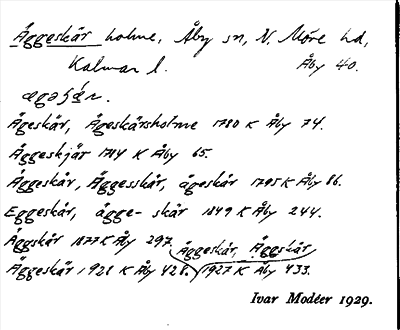 Äggeskär holme, Åby sn, N. Möre hd,
Kalmar l. Åby 40.
Ägeskär, Ägeskärsholme 1780 K Åby 74.
Äggeskjär 1784 K Åby 65.
Äggeskär, Äggesskär, ägeskär 1795 K Åby 86.
Eggeskär, ägge-skär 1849 K Åby 244.
Äggskär 1877 K Åby 297. Äggeskär, Äggskär
Äggeskär 1928 K Åby 428. 1927 K Åby 433.
Ivar Modéer 1929.